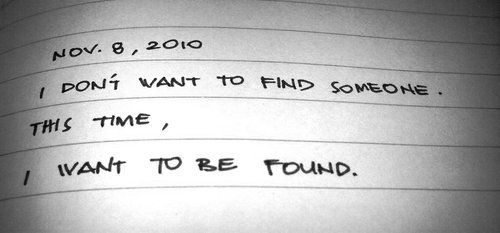 NOV. 8, 2010
I DON'T WANT TO FIND SOMEONE.
THIS TIME,
I WANT TO BE FOUND.